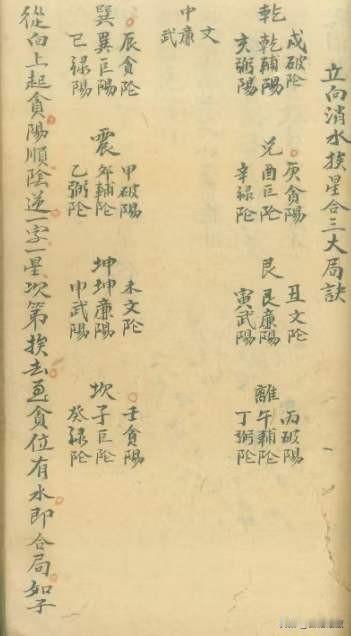 立向消水挨星合三大局訣
戌破陰 庚貪陽 丑文陰 丙破陽
乾乾輔陽 兌酉巨陰 艮艮廉陽 離午輔陰
亥弼陽 辛祿陰 寅武陽 丁弼陰
文
中廉
武
辰貪陰 甲破陽 未文陰 壬貪陽
巽巽巨陽 震卯輔陰 坤坤廉陽 坎子巨陰
巳祿陽 乙弼陰 申武陽 癸祿陰
從向上起貪陽順陰逆一字一星次第挨去遇貪位有水即合局如子